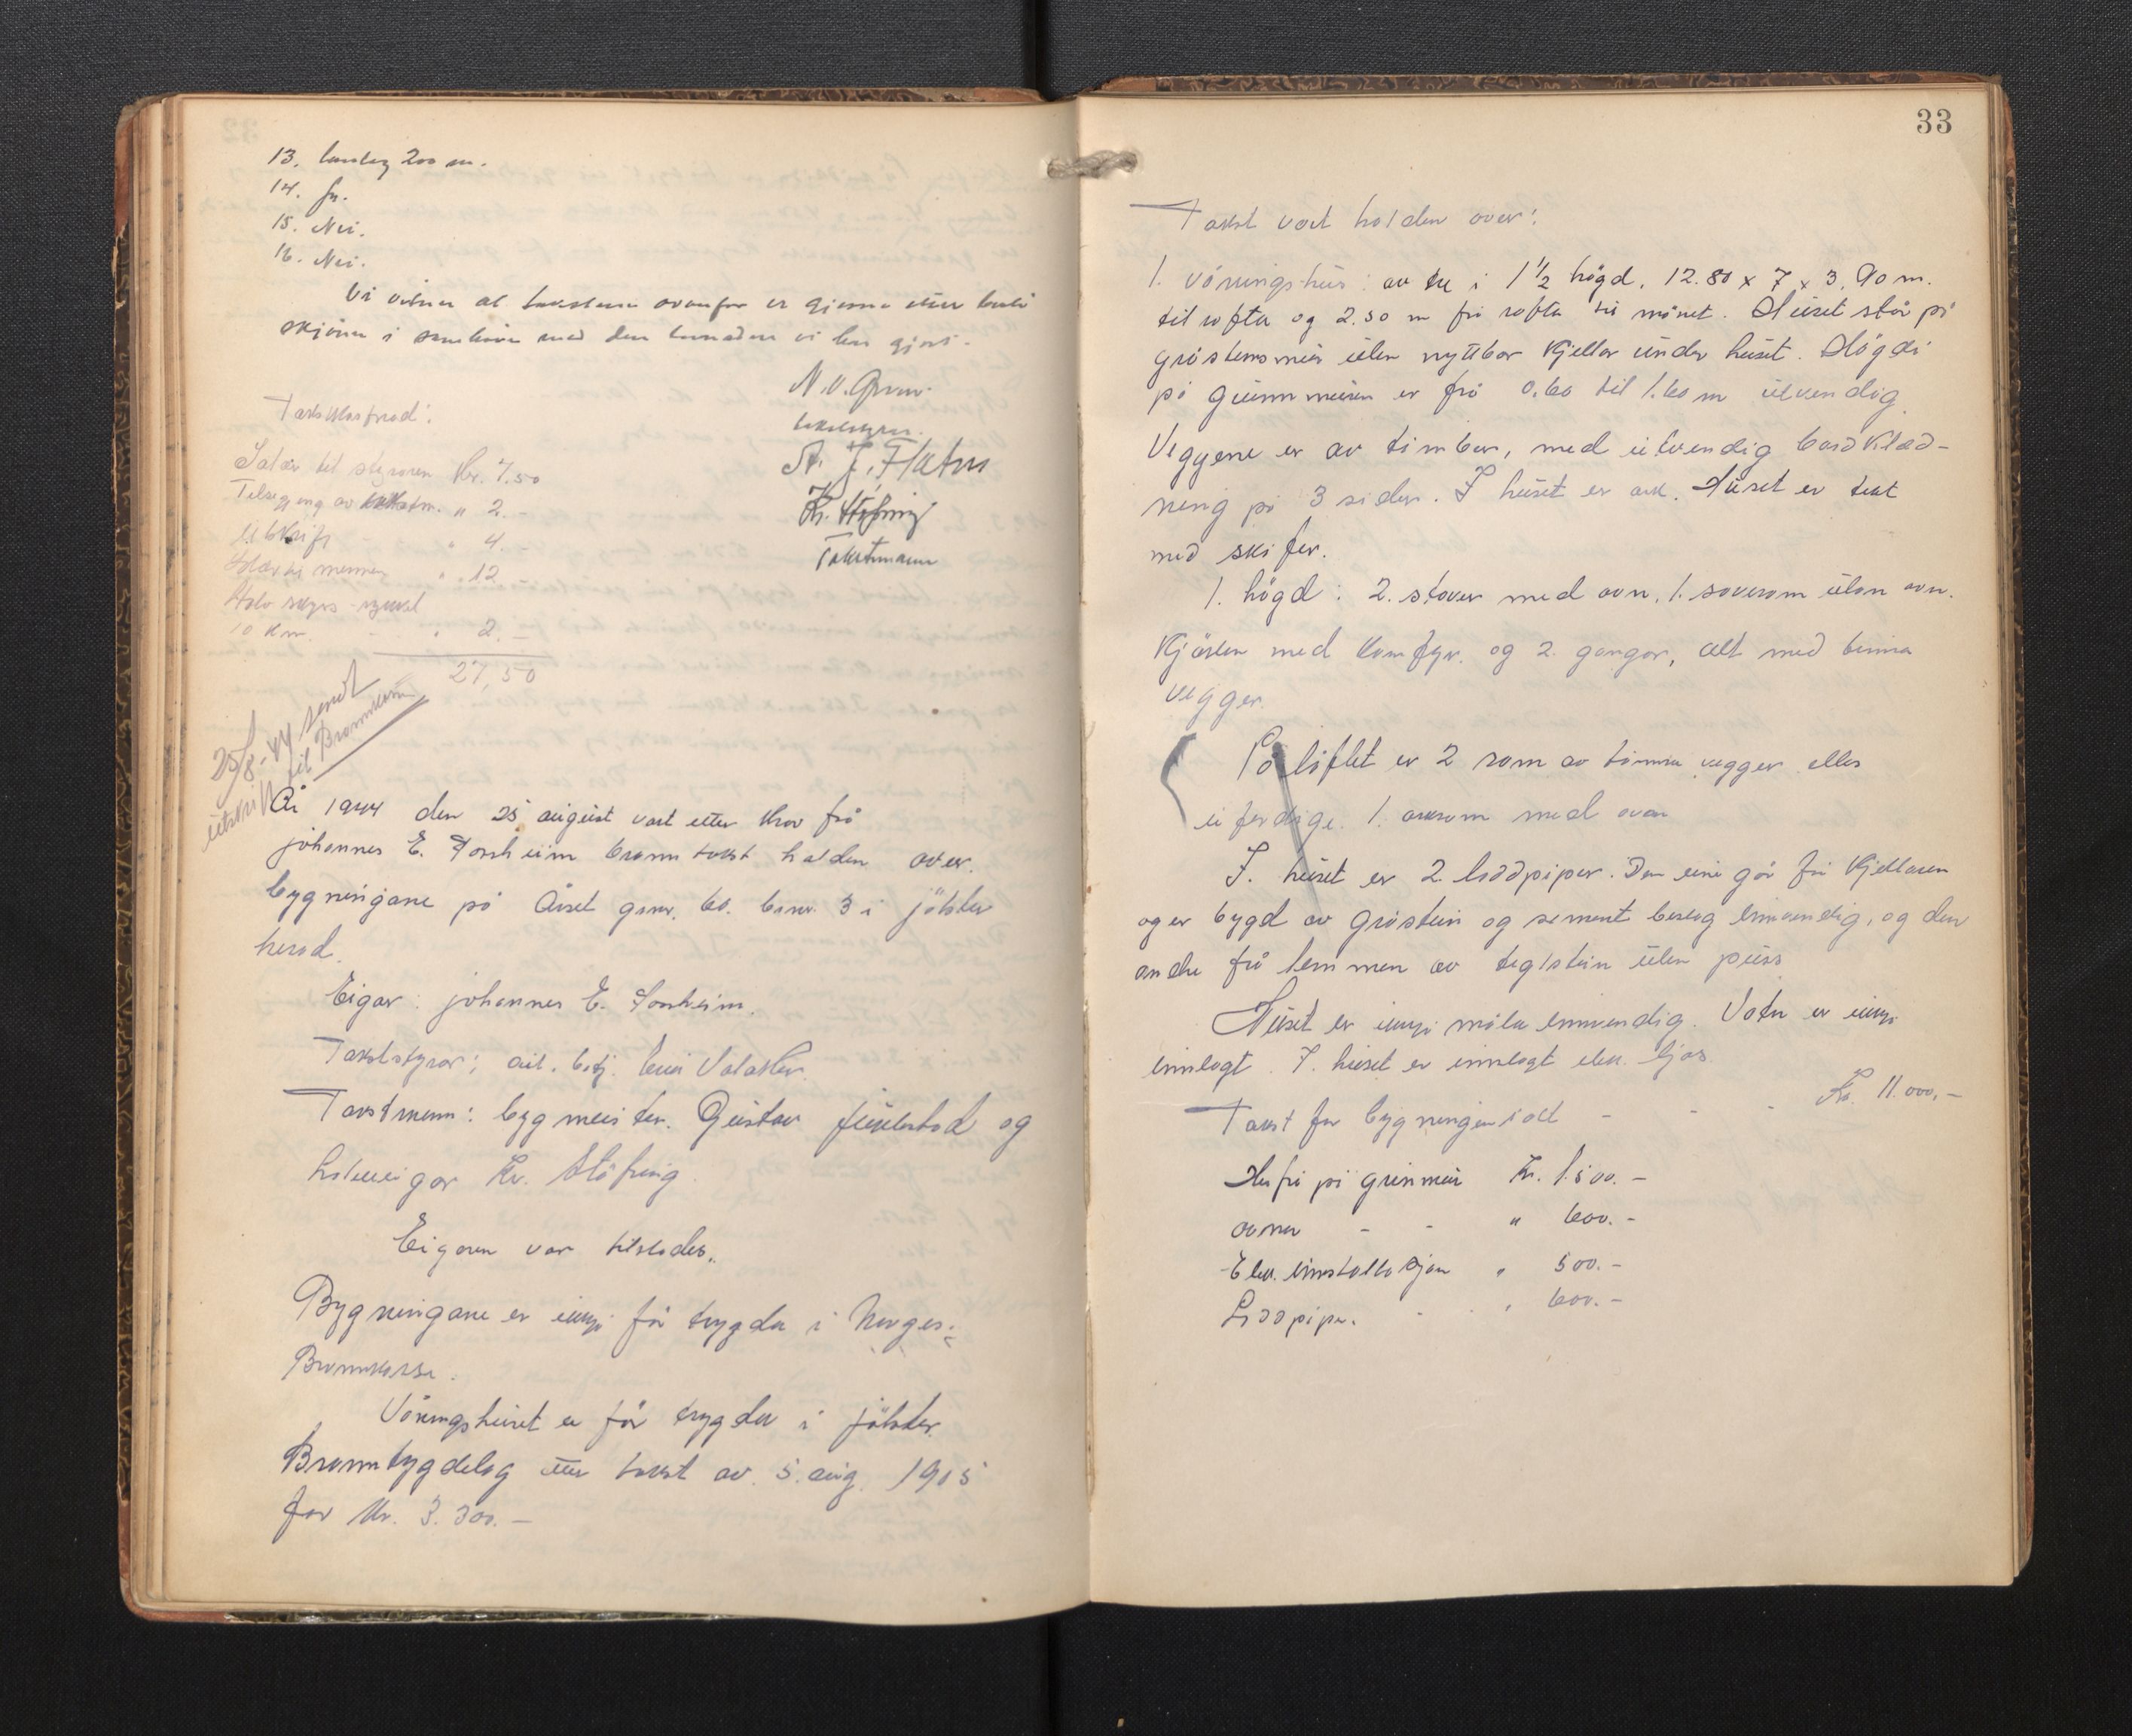 13. 200 m.
14. Ja.
15. Nei.
16. Nei.
Vi vitnar at ovanfor er gjorne etter beste
skjönn i med den vi har gjort.
N. V. Grav.
A. J. Flatn
Kr. Støfring
Takstmenn
Takstkostnad:
Salær til styraren Kr. 7.50
Tilsegjing av takstm. " 2.-
Utskrift - - " 4.-
Salær til mennene " 12.-
skyss
10 km. - - " 2.-
27,50
25/8-44 sendt
utskrift til Brannkassa
År 1944 den 25 august vart etter krav frå
Johannes E. branntakst halden over
bygningane på Årset gsnr. 60. bsnr. 3 i Jølster
herad.
Eigar: Johannes E.
Takststyrar: Valaker.
Takstmenn: byggmeister. Gustav og
Kr. Støfring.
Eigaren var tilstades.
Bygningane er ikkje før trygda i Norges
Brannkassa.
Våningshuset er før trygda i Jølster
Branntrygdelag etter takst av 5. aug. 1915
for Kr. 3.300.-
33
Takst vart halden over:
1. Våningshus: av tre i 1 1/2 högd. 12.80 x 7 x 3.90 m.
til rofta og 2.50 m frå rofta til mönet. Huset står på
gråsteinsmur utan nyttbar kjellar under huset. Högdi
på grunnmuren er frå 0.60 til 1.60 m utvendig.
Veggene er av timber, med utvendig bordklæd-
ning på 3 sider. I huset er ark. Huset er tekt
med skifer.
1. högd: 2. stover med ovn, 1. soverom utan ovn.
Kjøken med komfyr. og 2. gangar, alt med timra
vegger.
På loftet er 2 rom av timra vegger elles
uferdige. 1. arkrom med ovn
I. huset er 2. loddpiper. Den eine går frå kjellaren
og er bygd av gråstein og sement beslag innvendig, og den
andre frå lemmen av teglstein utan puss
Huset er ikkje måla innvendig. Vatn er ikkje
innlagt. I. huset er innlagt elek. ljos
Takst for bygningen i alt - - - Kr. 11.000,-
Herfrå på grunmur Kr. 1.500.-
ovner - - " 600.-
Elek. innstallasjon " 500.-
Loddpiper. - " 600.-